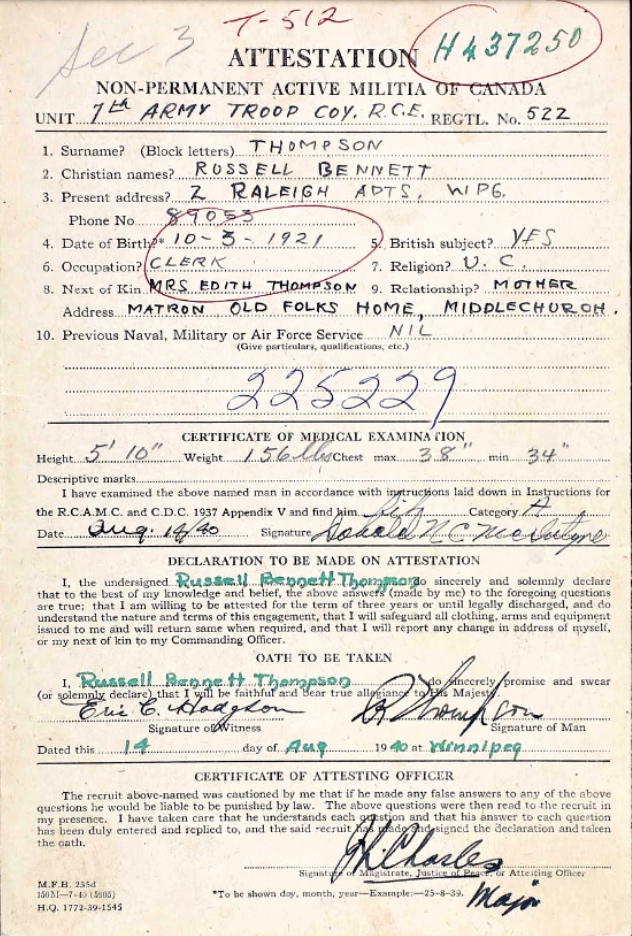 T-512
Sec 3
H437250
ATTESTATION
NON-PERMANENT ACTIVE MILITIA OF CANADA
UNIT 7th ARMY TROOP COY. R.C.E. REGTL. No. 522
1. Surname? (Block letters) THOMPSON
2. Christian names? RUSSELL BENNETT
3. Present address? 2 RALEIGH APTS, WPG.
Phone No. 89053
4. Date of Birth?* 10-3-1921 5. British subject? YES
6. Occupation? CLERK 7. Religion? U.C.
8. Next of Kin MRS EDITH THOMPSON 9. Relationship? MOTHER
Address MATRON OLD FOLKS HOME, MIDDLECHURCH.
10. Previous Naval, Military or Air Force Service NIL
(Give particulars, qualifications, etc.)
225229
CERTIFICATE OF MEDICAL EXAMINATION
Height 5' 10" Weight 156 lbs Chest max 38" min 34"
Descriptive marks
I have examined the above named man in accordance with instructions laid down in Instructions for
the R.C.A.M.C. and C.D.C. 1937 Appendix V and find him fit Category A
Date Aug. 14/40 Signature Donald N C McIntyre
DECLARATION TO BE MADE ON ATTESTATION
I, the undersigned Russell Bennett Thompson do sincerely and solemnly declare
that to the best of my knowledge and belief, the above answers (made by me) to the foregoing questions
are true; that I am willing to be attested for the term of three years or until legally discharged, and do
understand the nature and terms of this engagement, that I will safeguard all clothing, arms and equipment
issued to me and will return same when required, and that I will report any change in address of myself,
or my next of kin to my Commanding Officer.
OATH TO BE TAKEN
I, Russell Bennett Thompson do sincerely promise and swear
(or solemnly declare) that I will be faithful and bear true allegiance to His Majesty
Eric C. Hodgson R Thompson
Signature of Witness Signature of Man
Dated this 14 day of Aug 1940 at Winnipeg
CERTIFICATE OF ATTESTING OFFICER
The recruit above-named was cautioned by me that if he made any false answers to any of the above
questions he would be liable to be punished by law. The above questions were then read to the recruit in
my presence. I have taken care that he understands each question and that his answer to each question
has been duly entered and replied to, and the said recruit has made and signed the declaration and taken
the oath.
Charles
Signature of Magistrate, Justice of Peace, or Attesting Officer
Major
M.F.B. 235d
150M—7-40 (5605)
H.Q. 1772-39-1545
*To be shown day, month, year—Example:—25-8-39.